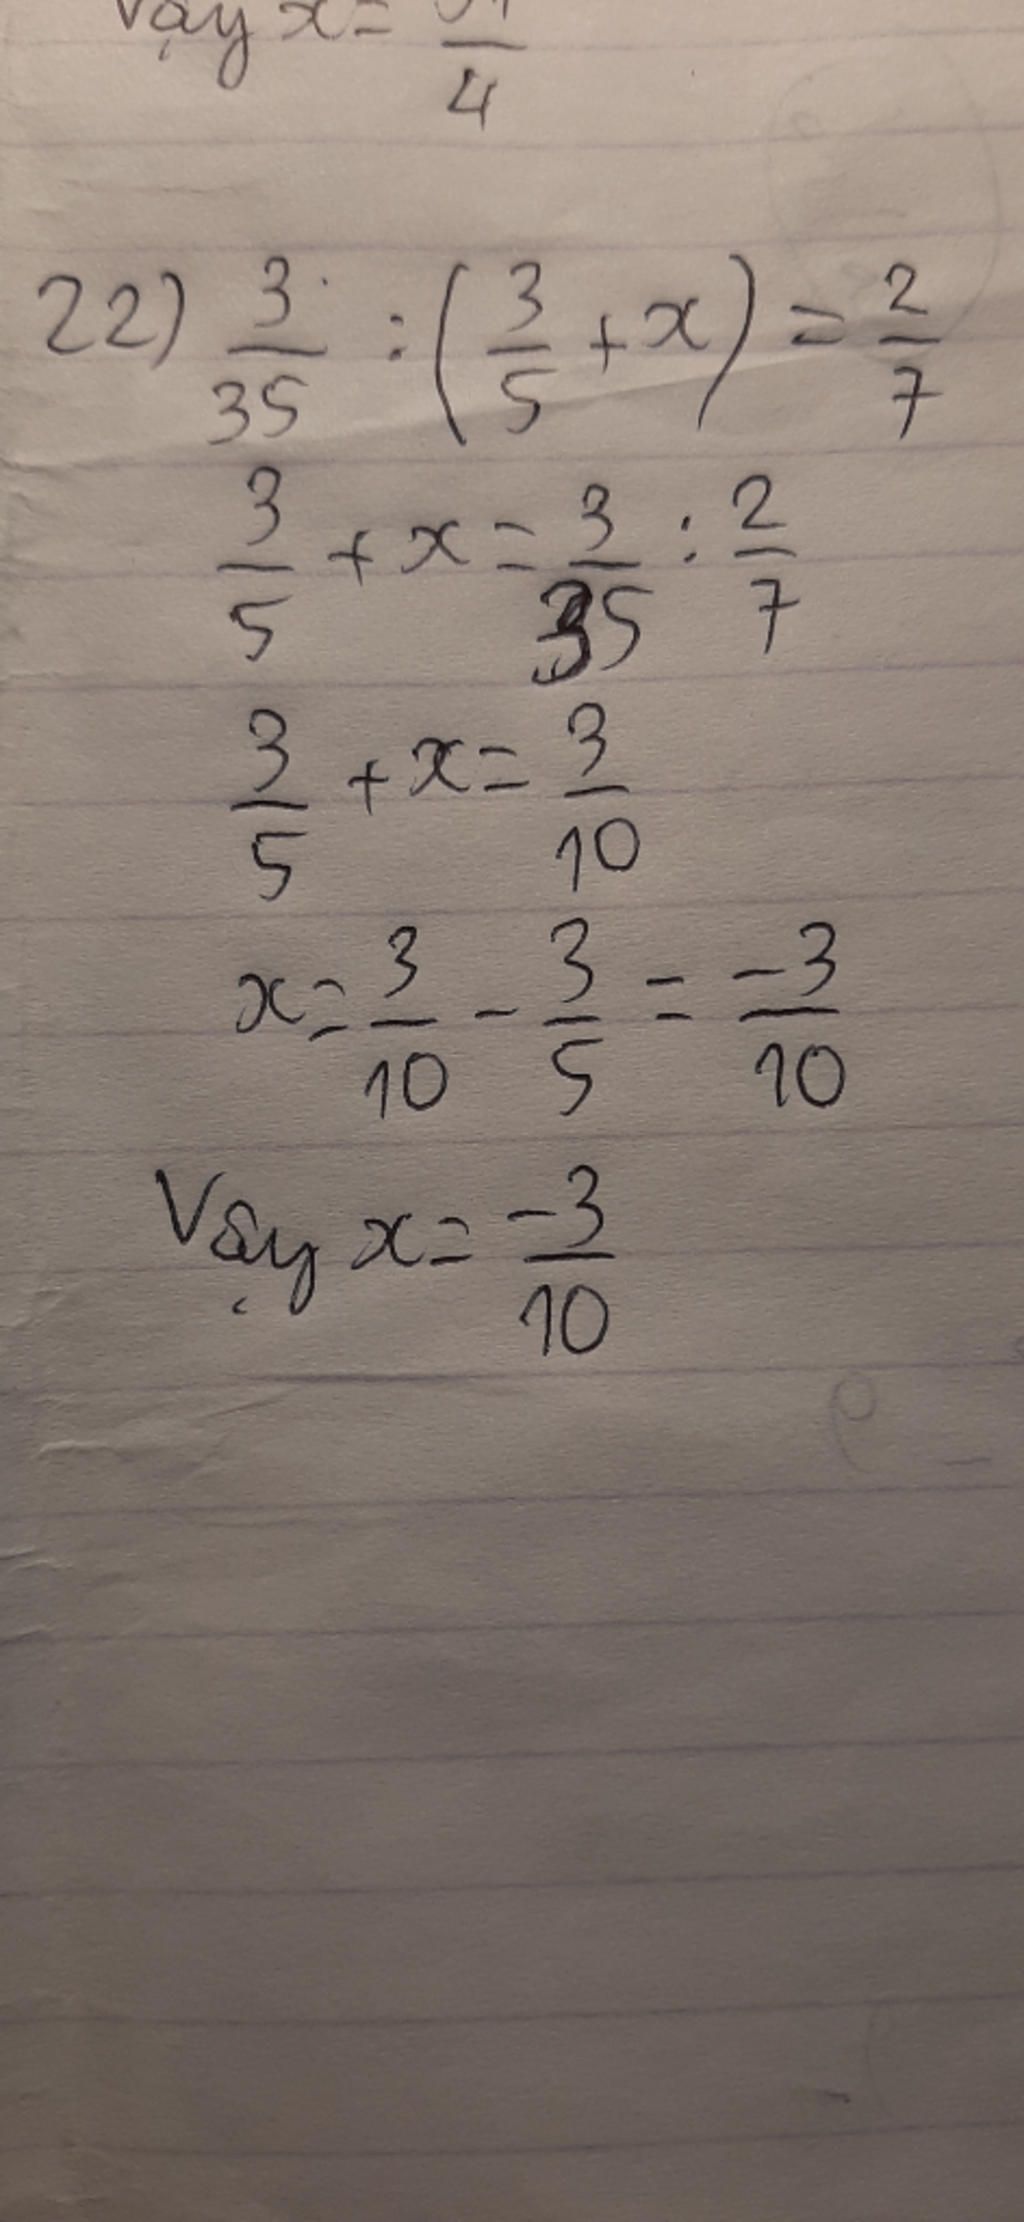 Vậy x = /4
22) 3/35 : (3/5 + x) = 2/7
3/5 + x = 3/35 : 2/7
3/5 + x = 3/10
x = 3/10 - 3/5 = -3/10
Vậy x = -3/10